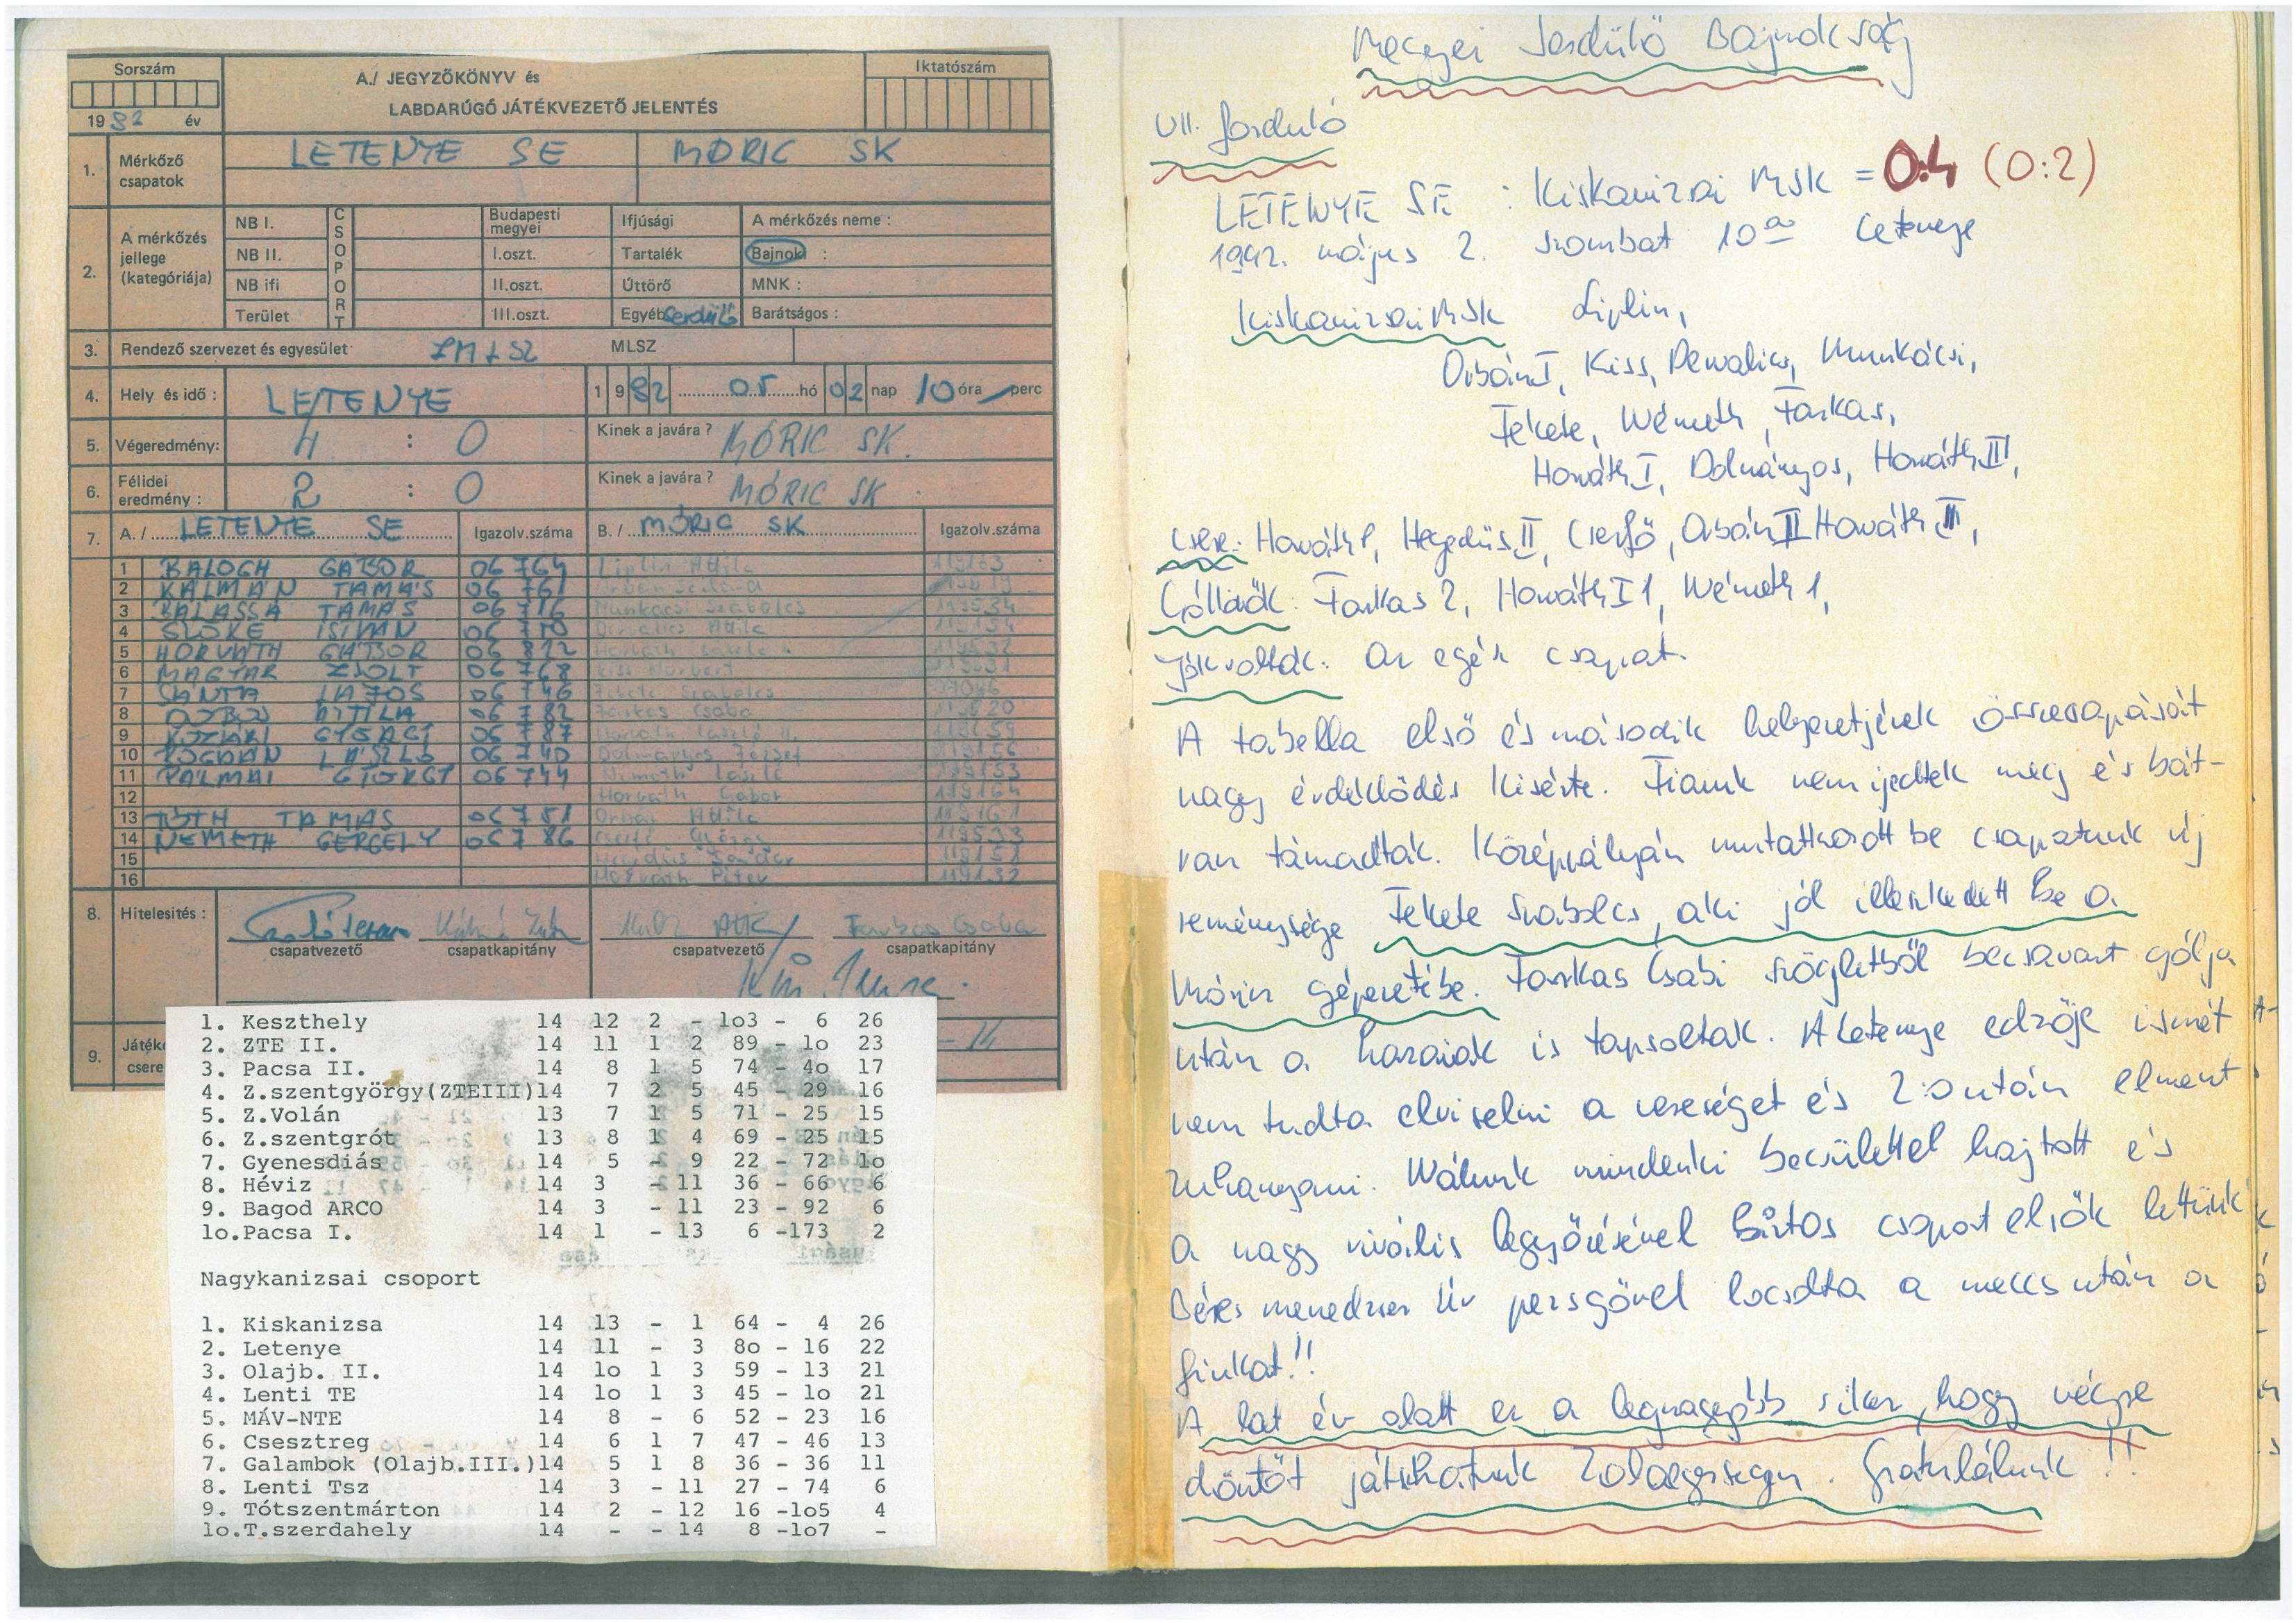 Sorszám
A./ JEGYZŐKÖNYV és
LABDARÚGÓ JÁTÉKVEZETŐ JELENTÉS
Iktatószám
1992 év
1. Mérkőző csapatok LETENYE SE MÓRIC SK
2. A mérkőzés jellege (kategóriája)
NB I.
NB II.
NB ifi
Terület
CSOPORT
Budapesti megyei
I.oszt.
II.oszt.
III.oszt.
Ifjúsági
Tartalék
Úttörő
Egyéb serdülő
A mérkőzés neme :
Bajnok :
MNK :
Barátságos :
3. Rendező szervezet és egyesület ZMLSZ MLSZ
4. Hely és idő : LETENYE 1992 05 hó 02 nap 10 óra perc
5. Végeredmény: 4 : 0 Kinek a javára ? MÓRIC SK.
6. Félidei eredmény : 2 : 0 Kinek a javára ? MÓRIC SK
7. A./ LETENYE SE Igazolv.száma B./ MÓRIC SK Igazolv.száma
1 BALOGH GÁBOR 06764 Liplin Attila 119163
2 KÁLMÁN TAMÁS 06761
3 BALASSA TAMÁS 06716 Munkácsi Szabolcs 119534
4 SZŐKE ISTVÁN Attila
5 HORVÁTH GÁBOR 06812 Horváth László
6 MAGYAR ZSOLT 06768 Kiss Norbert
7 SÁNTA LAJOS 06746 Fekete Szabolcs
8 ATTILA 06782 Farkas Csaba
9 GYÖRGY 06787 Horváth László II.
10 BOGDÁN LÁSZLÓ 06740 Dolmányos József
11 PÁLMAI GYÖRGY 06744 Németh László 119133
12 Horváth Gábor 119164
13 TÓTH TAMÁS 06751 Orbán Attila 119161
14 NÉMETH GERGELY 06786 Cserfő György 119533
15 Hegedüs Sándor 119151
16 Horváth Péter 119132
8. Hitelesités :
Farkas Csaba
csapatvezető csapatkapitány csapatvezető csapatkapitány
9.
1. Keszthely 14 12 2 - 1o3 - 6 26
2. ZTE II. 14 11 1 2 89 - 1o 23
3. Pacsa II. 14 8 1 5 74 - 4o 17
4. Z.szentgyörgy(ZTEIII)14 7 2 5 45 - 29 16
5. Z.Volán 13 7 1 5 71 - 25 15
6. Z.szentgrót 13 8 1 4 69 - 25 15
7. Gyenesdiás 14 5 - 9 22 - 72 1o
8. Héviz 14 3 - 11 36 - 66 6
9. Bagod ARCO 14 3 - 11 23 - 92 6
1o.Pacsa I. 14 1 - 13 6 -173 2
Nagykanizsai csoport
1. Kiskanizsa 14 13 - 1 64 - 4 26
2. Letenye 14 11 - 3 8o - 16 22
3. Olajb. II. 14 1o 1 3 59 - 13 21
4. Lenti TE 14 1o 1 3 45 - 1o 21
5. MÁV-NTE 14 8 - 6 52 - 23 16
6. Csesztreg 14 6 1 7 47 - 46 13
7. Galambok (Olajb.III.)14 5 1 8 36 - 36 11
8. Lenti Tsz 14 3 - 11 27 - 74 6
9. Tótszentmárton 14 2 - 12 16 -1o5 4
1o.T.szerdahely 14 - - 14 8 -1o7 -
Megyei Serdülő Bajnokság
VII. forduló
LETENYE SE : Kiskanizsai MSK = 0:4 (0:2)
1992. május 2. szombat 10°° Letenye
Kiskanizsai MSK Liplin,
Orbán I, Kiss, Dervalics, Munkácsi,
Fekete, Németh, Farkas,
Horváth I, Dolmányos, Horváth III,
Csere: Horváth P, Hegedüs II, Cserfő, Orbán II Horváth II,
Góllövők: Farkas 2, Horváth I 1, Németh 1,
Jók voltak: az egész csapat.
A tabella első és második helyezetjének összecsapását
nagy érdeklődés kisérte. Fiaink nem ijedtek meg és bát-
ran támadtak. Középpályán mutatkozott be csapatunk új
reménysége Fekete Szabolcs, aki jól illeszkedett be a
Móric gépezetébe. Farkas Csabi szögletből becsavart gólja
után a hazaiak is tapsoltak. A Letenye edzője ismét
nem tudta elviselni a vereséget és 2:0 után elment
zuhanyozni. Nálunk mindenki becsülettel hajtott és
a nagy rivális legyőzésével biztos csoport elsők lettünk
Béres menedzser úr pezsgővel locsolta a meccs után a
fiukat!!
A hat év alatt ez a legnagyobb siker, hogy végre
döntőt játszhatunk Zalaegerszegen. Gratulálunk!!